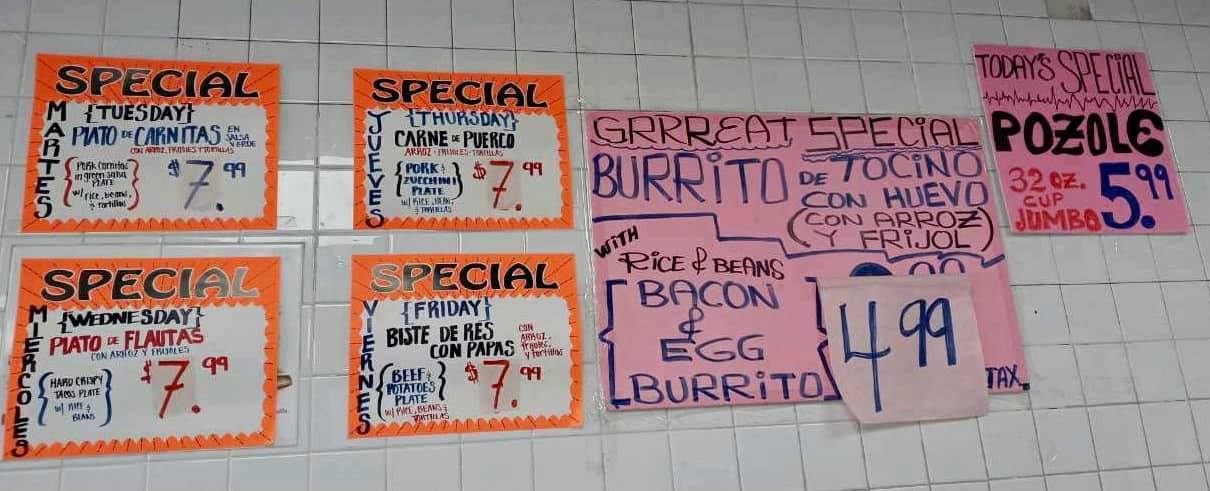 SPECIAL
MARTES
{TUESDAY}
PLATO DE CARNITAS EN SALSA VERDE
CON ARROZ, FRIJOLES Y TORTILLAS
PORK carnitas
in green salsa
PLATE
w/ rice, beans,
& tortillas
$7.99
SPECIAL
JUEVES
{THURSDAY}
CARNE DE PUERCO
ARROZ - FRIJOLES - TORTILLAS
PORK &
ZUCCHINI
PLATE
W/ RICE, BEANS
& TORTILLAS
$7.99
SPECIAL
MIERCOLES
{WEDNESDAY}
PLATO DE FLAUTAS
CON ARROZ Y FRIJOLES
HARD CRISPY
TACOS PLATE
W/ RICE &
BEANS
$7.99
SPECIAL
VIERNES
{FRIDAY}
BISTE DE RES
CON PAPAS
CON
ARROZ,
frijoles,
y tortillas
BEEF &
POTATOES
PLATE
W/ RICE, BEANS &
TORTILLAS
$7.99
GRRREAT SPECIAL
BURRITO DE TOCINO
CON HUEVO
(CON ARROZ
Y FRIJOL)
WITH
RICE & BEANS
BACON
&
EGG
BURRITO
4.99
TAX
TODAY'S SPECIAL
POZOLE
32 OZ.
CUP
JUMBO
5.99